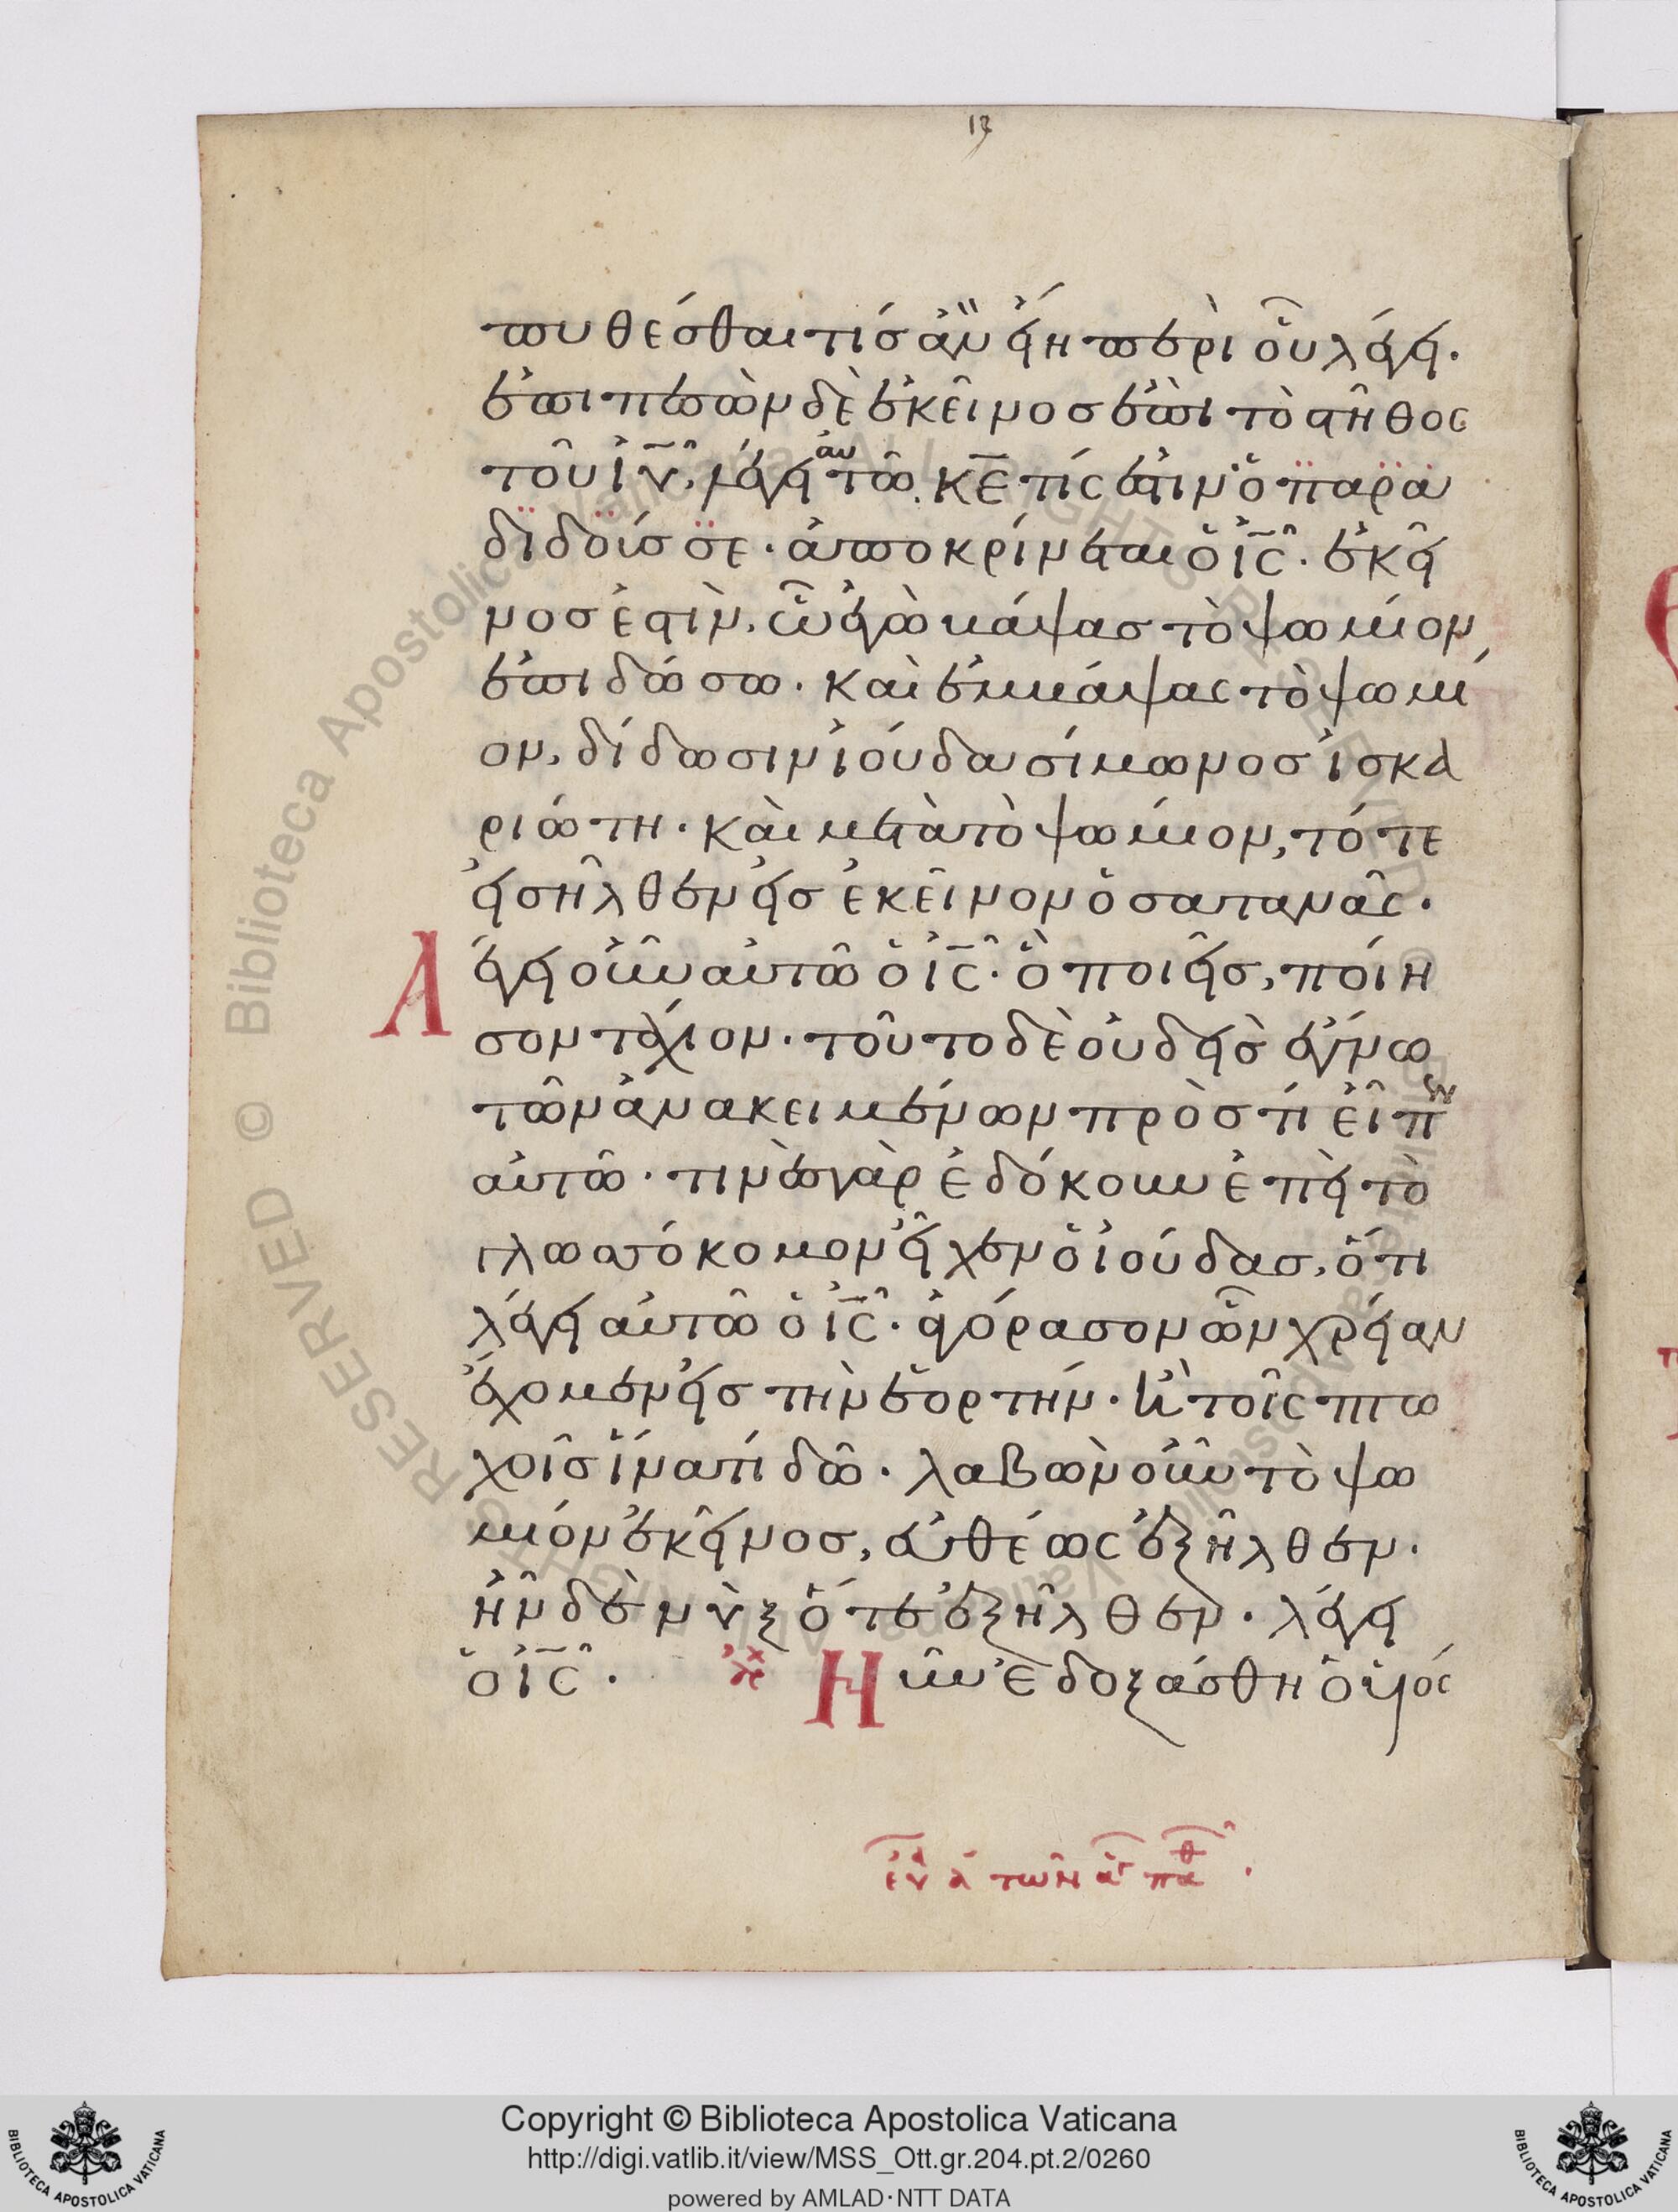 13
πυθέσθαι τίς ἂν εἴη περὶ οὗ λέγει.
ἐπιπεσὼν δὲ ἐκεῖνος ἐπὶ τὸ στῆθος
τοῦ ἰῦ, λέγει αὐτῶ. κε τίς ἐστιν ὁ παρα
διδούς σε. ἀποκρίνεται ὁ ἰς. ἐκεῖ
νος ἐστὶν, ὧ ἐγὼ βάψας τὸ ψωμίον
ἐπιδώσω. καὶ ἐμβάψας τὸ ψωμί
ον, δίδωσιν ἰούδα σίμωνος ἰσκα
ριώτη. καὶ μετὰ τὸ ψωμίον, τότε
εἰσῆλθεν εἰς ἐκεῖνον ὁ σατανᾶς.
Λέγει οὖν αὐτῶ ὁ ἰς. ὃ ποιεῖς, ποίη
σον τάχιον. τοῦτο δὲ οὐδεὶς ἔγνω
τῶν ἀνακειμένων πρὸς τί εἶπεν
αὐτῶ. τινὲς γὰρ ἐδόκουν ἐπεὶ τὸ
γλωσσόκομον εἶχεν ὁ ἰούδας, ὅτι
λέγει αὐτῶ ὁ ἰς. ἀγόρασον ὧν χρείαν
ἔχομεν εἰς τὴν ἑορτήν. ἢ τοῖς πτω
χοῖς ἵνα τί δῶ. λαβὼν οὖν τὸ ψω
μίον ἐκεῖνος, εὐθέως ἐξῆλθεν.
ἦν δὲ νὺξ ὅτε ἐξῆλθεν. λέγει
ὁ ἰς. Νῦν ἐδοξάσθη ὁ υἱός
Copyright © Biblioteca Apostolica Vaticana
http://digi.vatlib.it/view/MSS_Ott.gr.204.pt.2/0260
powered by AMLAD·NTT DATA